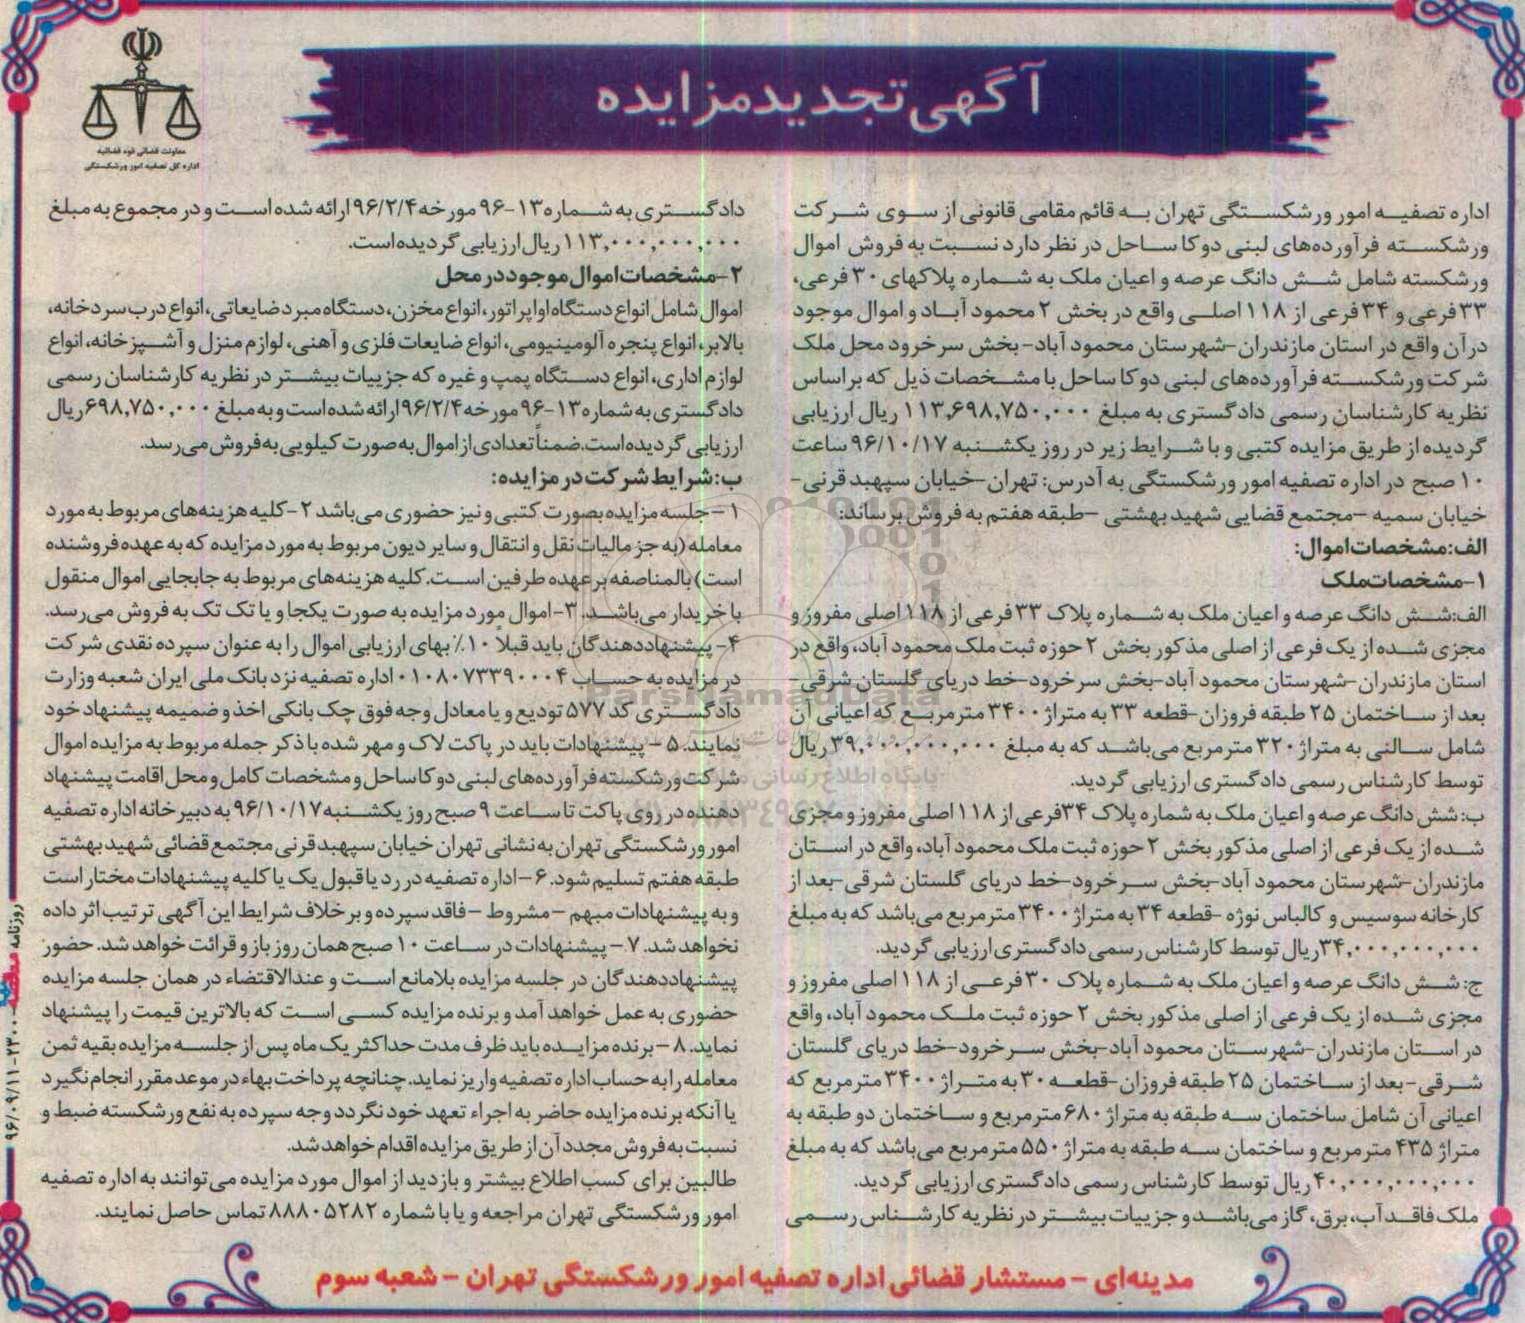 آگهی تجدید مزایده
معاونت قضائی قوه قضائیه
اداره کل تصفیه امور ورشکستگی
اداره تصفیه امور ورشکستگی تهران به قائم مقامی قانونی از سوی شرکت
ورشکسته فرآورده‌های لبنی دوکا ساحل در نظر دارد نسبت به فروش اموال
ورشکسته شامل شش دانگ عرصه و اعیان ملک به شماره پلاکهای ۳۰ فرعی،
۳۳ فرعی و ۳۴ فرعی از ۱۱۸ اصلی واقع در بخش ۲ محمود آباد و اموال موجود
درآن واقع در استان مازندران-شهرستان محمود آباد-بخش سرخرود محل ملک
شرکت ورشکسته فرآورده‌های لبنی دوکا ساحل با مشخصات ذیل که براساس
نظریه کارشناسان رسمی دادگستری به مبلغ ۱۱۳,۶۹۸,۷۵۰,۰۰۰ ریال ارزیابی
گردیده از طریق مزایده کتبی و با شرایط زیر در روز یکشنبه ۹۶/۱۰/۱۷ ساعت
۱۰ صبح در اداره تصفیه امور ورشکستگی به آدرس: تهران-خیابان سپهبد قرنی-
خیابان سمیه -مجتمع قضایی شهید بهشتی -طبقه هفتم به فروش برساند:
الف: مشخصات اموال:
۱-مشخصات ملک
الف: شش دانگ عرصه و اعیان ملک به شماره پلاک ۳۳ فرعی از ۱۱۸ اصلی مفروز و
مجزی شده از یک فرعی از اصلی مذکور بخش ۲ حوزه ثبت ملک محمود آباد، واقع در
استان مازندران-شهرستان محمود آباد-بخش سرخرود-خط دریای گلستان شرقی-
بعد از ساختمان ۲۵ طبقه فروزان-قطعه ۳۳ به متراژ ۳۴۰۰ مترمربع که اعیانی آن
شامل سالنی به متراژ ۳۲۰ مترمربع می‌باشد که به مبلغ ۳۹,۰۰۰,۰۰۰,۰۰۰ ریال
توسط کارشناس رسمی دادگستری ارزیابی گردید.
ب: شش دانگ عرصه و اعیان ملک به شماره پلاک ۳۴ فرعی از ۱۱۸ اصلی مفروز و مجزی
شده از یک فرعی از اصلی مذکور بخش ۲ حوزه ثبت ملک محمود آباد، واقع در استان
مازندران-شهرستان محمود آباد-بخش سرخرود-خط دریای گلستان شرقی-بعد از
کارخانه سوسیس و کالباس نوژه -قطعه ۳۴ به متراژ ۳۴۰۰ مترمربع می‌باشد که به مبلغ
۳۴,۰۰۰,۰۰۰,۰۰۰ ریال توسط کارشناس رسمی دادگستری ارزیابی گردید.
ج: شش دانگ عرصه و اعیان ملک به شماره پلاک ۳۰ فرعی از ۱۱۸ اصلی مفروز و
مجزی شده از یک فرعی از اصلی مذکور بخش ۲ حوزه ثبت ملک محمود آباد، واقع
در استان مازندران-شهرستان محمود آباد-بخش سرخرود-خط دریای گلستان
شرقی-بعد از ساختمان ۲۵ طبقه فروزان-قطعه ۳۰ به متراژ ۳۴۰۰ مترمربع که
اعیانی آن شامل ساختمان سه طبقه به متراژ ۶۸۰ مترمربع و ساختمان دو طبقه به
متراژ ۴۳۵ مترمربع و ساختمان سه طبقه به متراژ ۵۵۰ مترمربع می‌باشد که به مبلغ
۴۰,۰۰۰,۰۰۰,۰۰۰ ریال توسط کارشناس رسمی دادگستری ارزیابی گردید.
ملک فاقد آب، برق، گاز می‌باشد و جزییات بیشتر در نظریه کارشناس رسمی
دادگستری به شماره ۱۳-۹۶ مورخه ۹۶/۲/۴ ارائه شده است و در مجموع به مبلغ
۱۱۳,۰۰۰,۰۰۰,۰۰۰ ریال ارزیابی گردیده است.
۲-مشخصات اموال موجود در محل
اموال شامل انواع دستگاه اواپراتور، انواع مخزن، دستگاه مبرد ضایعاتی، انواع درب سردخانه،
بالابر، انواع پنجره آلومینیومی، انواع ضایعات فلزی و آهنی، لوازم منزل و آشپزخانه، انواع
لوازم اداری، انواع دستگاه پمپ و غیره که جزییات بیشتر در نظریه کارشناسان رسمی
دادگستری به شماره ۱۳-۹۶ مورخه ۹۶/۲/۴ ارائه شده است و به مبلغ ۶۹۸,۷۵۰,۰۰۰ ریال
ارزیابی گردیده است. ضمناً تعدادی از اموال به صورت کیلویی به فروش می‌رسد.
ب: شرایط شرکت در مزایده:
۱-جلسه مزایده بصورت کتبی و نیز حضوری می‌باشد ۲-کلیه هزینه‌های مربوط به مورد
معامله (به جز مالیات نقل و انتقال و سایر دیون مربوط به مورد مزایده که به عهده فروشنده
است) بالمناصفه بر عهده طرفین است. کلیه هزینه‌های مربوط به جابجایی اموال منقول
با خریدار می‌باشد. ۳-اموال مورد مزایده به صورت یکجا و یا تک تک به فروش می‌رسد.
۴-پیشنهاددهندگان باید قبلاً ۱۰٪ بهای ارزیابی اموال را به عنوان سپرده نقدی شرکت
در مزایده به حساب ۰۱۰۸۰۷۳۳۹۰۰۰۴ اداره تصفیه نزد بانک ملی ایران شعبه وزارت
دادگستری کد ۵۷۷ تودیع و یا معادل وجه فوق چک بانکی اخذ و ضمیمه پیشنهاد خود
نمایند. ۵-پیشنهادات باید در پاکت لاک و مهر شده با ذکر جمله مربوط به مزایده اموال
شرکت ورشکسته فرآورده‌های لبنی دوکا ساحل و مشخصات کامل و محل اقامت پیشنهاد
دهنده در روی پاکت تا ساعت ۹ صبح روز یکشنبه ۹۶/۱۰/۱۷ به دبیرخانه اداره تصفیه
امور ورشکستگی تهران به نشانی تهران خیابان سپهبد قرنی مجتمع قضائی شهید بهشتی
طبقه هفتم تسلیم شود. ۶-اداره تصفیه در رد یا قبول یک یا کلیه پیشنهادات مختار است
و به پیشنهادات مبهم -مشروط -فاقد سپرده و برخلاف شرایط این آگهی ترتیب اثر داده
نخواهد شد. ۷-پیشنهادات در ساعت ۱۰ صبح همان روز باز و قرائت خواهد شد. حضور
پیشنهاددهندگان در جلسه مزایده بلامانع است و عندالاقتضاء در همان جلسه مزایده
حضوری به عمل خواهد آمد و برنده مزایده کسی است که بالاترین قیمت را پیشنهاد
نماید. ۸-برنده مزایده باید ظرف مدت حداکثر یک ماه پس از جلسه مزایده بقیه ثمن
معامله را به حساب اداره تصفیه واریز نماید. چنانچه پرداخت بهاء در موعد مقرر انجام نگیرد
یا آنکه برنده مزایده حاضر به اجراء تعهد خود نگردد وجه سپرده به نفع ورشکسته ضبط و
نسبت به فروش مجدد آن از طریق مزایده اقدام خواهد شد.
طالبین برای کسب اطلاع بیشتر و بازدید از اموال مورد مزایده می‌توانند به اداره تصفیه
امور ورشکستگی تهران مراجعه و یا با شماره ۸۸۸۰۵۲۸۲ تماس حاصل نمایند.
مدینه‌ای - مستشار قضائی اداره تصفیه امور ورشکستگی تهران - شعبه سوم
ParsNamadData